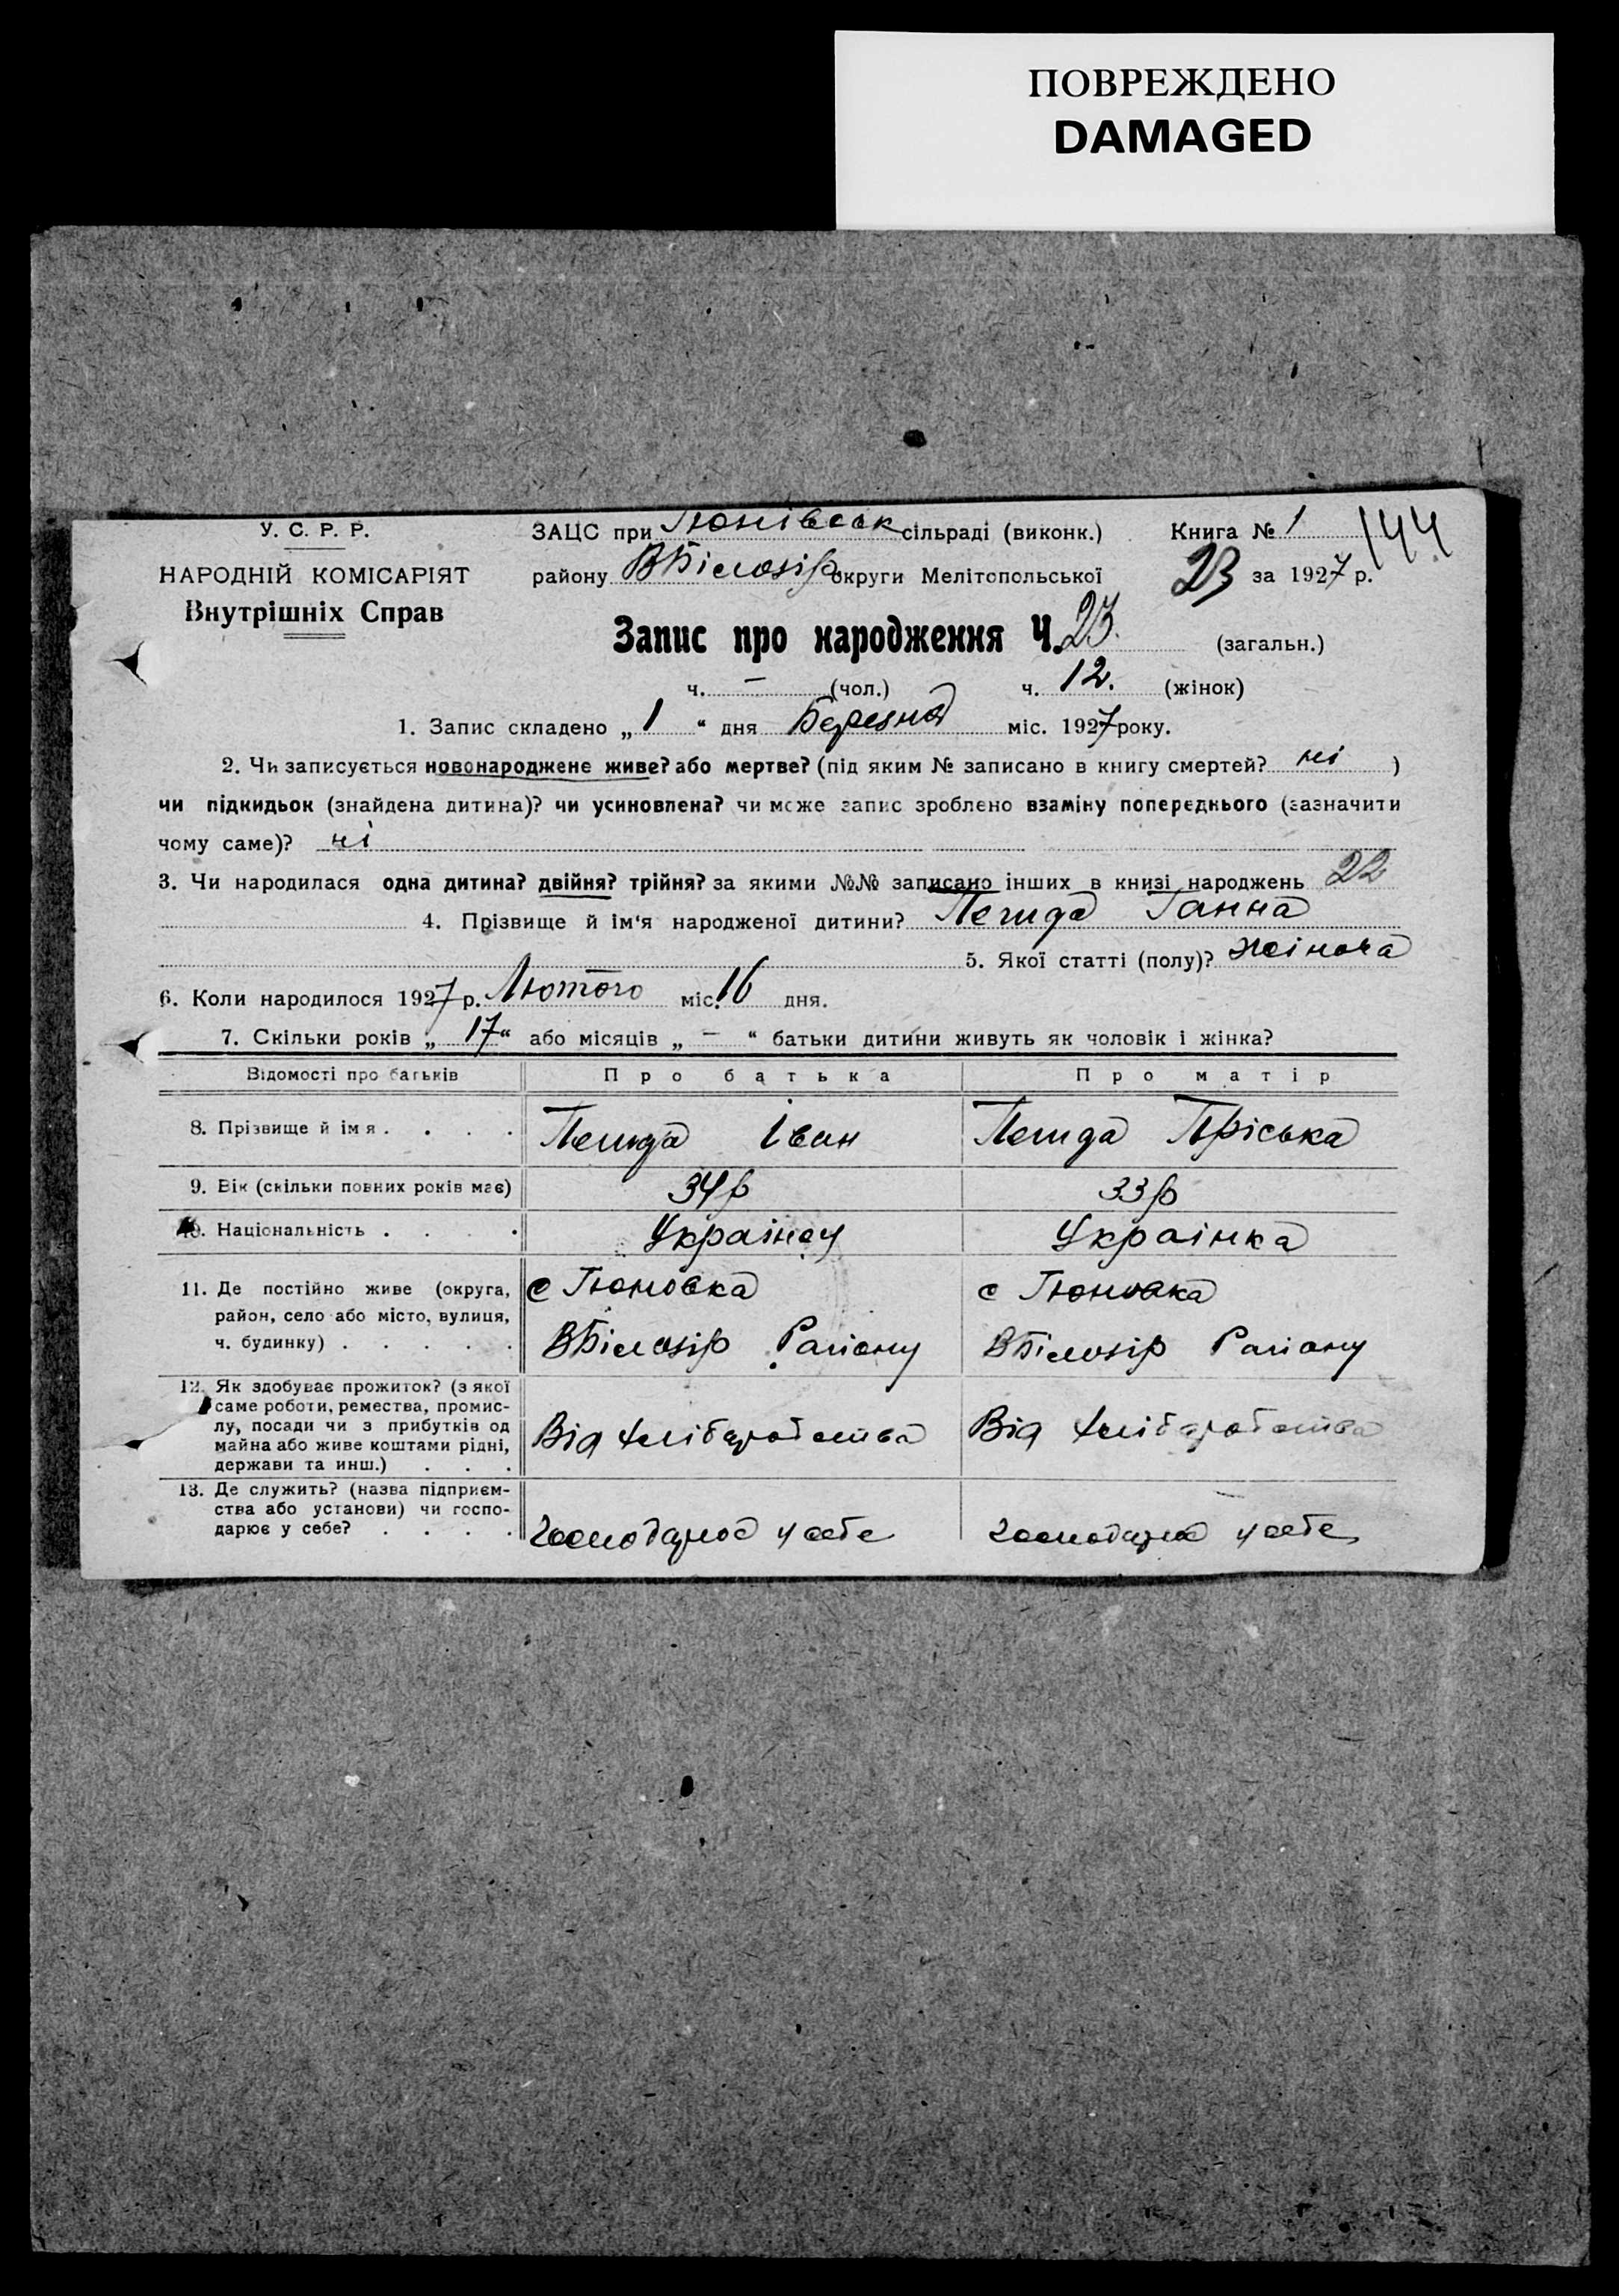 ПОВРЕЖДЕНО
DAMAGED
У. С. Р. Р.
НАРОДНІЙ КОМІСАРІЯТ
Внутрішніх Справ
ЗАЦС при Гюнівськ сільраді (виконк.)
району ВБілозір округи Мелітопольської
Книга № 1
144
23 за 1927 р.
Запис про народження Ч. 23. (загальн.)
ч. — (чол.) ч. 12. (жінок)
1. Запис складено „ 1 “ дня Березня міс. 1927 року.
2. Чи записується новонароджене живе? або мертве? (під яким № записано в книгу смертей? ні )
чи підкидьок (знайдена дитина)? чи усиновлена? чи може запис зроблено взаміну попереднього (зазначити
чому саме)? ні
3. Чи народилася одна дитина? двійня? трійня? за якими №№ записано інших в книзі народжень 22
4. Прізвище й ім'я народженої дитини? Ганна
5. Якої статті (полу)? жіноча
6. Коли народилося 1927 р. Лютого міс. 16 дня.
7. Скільки років „ 17 “ або місяців „ — “ батьки дитини живуть як чоловік і жінка?
Відомості про батьків Про батька Про матір
8. Прізвище й імя . . . . Іван Пріська
9. Вік (скільки повних років має) 34 р 33 р
10. Національність . . . . Украінец Украінка
11. Де постійно живе (округа, с Гюновка с Гюновка
район, село або місто, вулиця,
ч. будинку) . . . . . ВБілозір Раиону ВБілозір Раиону
12. Як здобуває прожиток? (з якої
саме роботи, ремества, промис-
лу, посади чи з прибутків од
майна або живе коштами рідні, Від хліборобства Від хліборобства
держави та инш.) . . .
13. Де служить? (назва підприєм-
ства або установи) чи госпо-
дарює у себе? . . . . господарює у себе господарює у себе